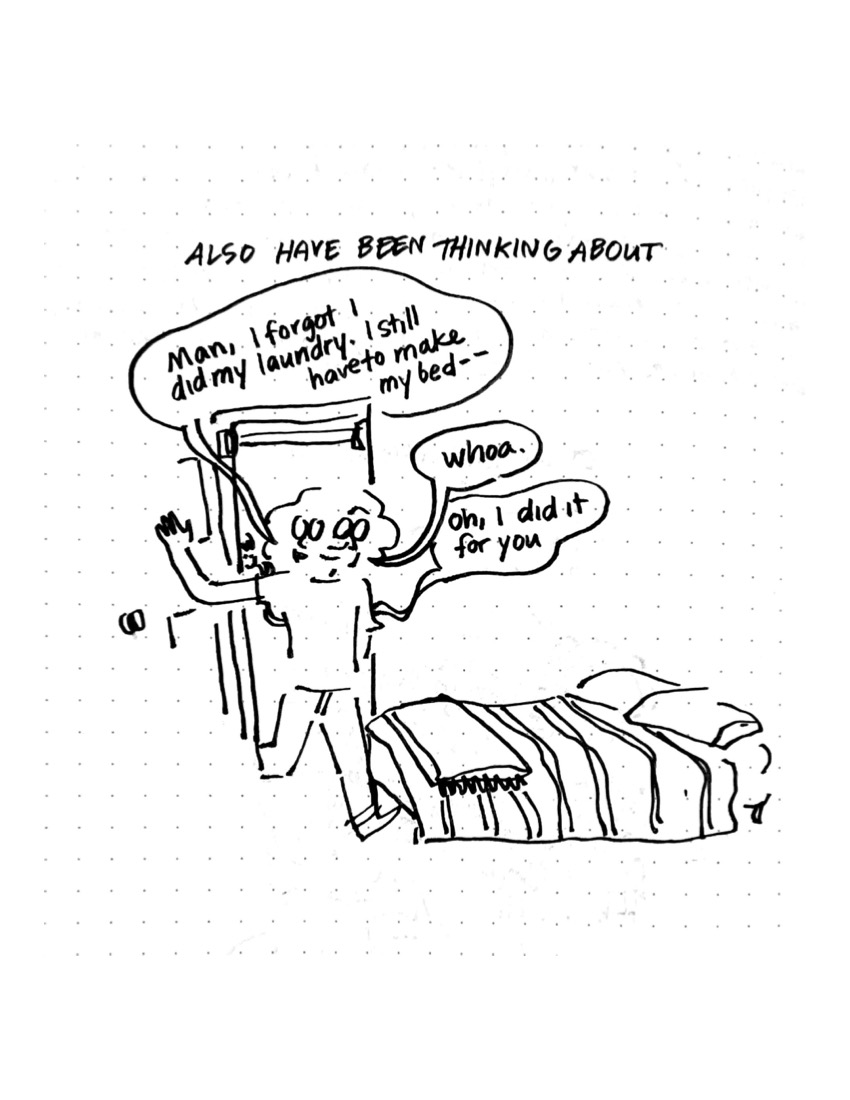 ALSO HAVE BEEN THINKING ABOUT
Man, I forgot I
did my laundry. I still
have to make
my bed--
whoa.
oh, I did it
for you